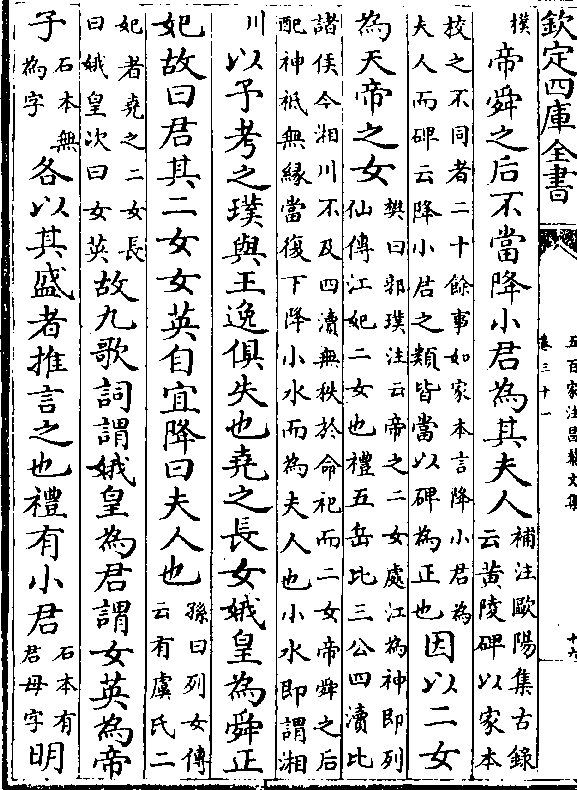 欽定四庫全書
五百家注昌黎文集
卷三十一
十六
璞帝舜之后不當降小君為其夫人補注歐陽集古錄
云黄陵碑以家本
校之不同者二十餘事如家本言降小君為
夫人而碑云降小君之類皆當以碑為正也因以二女
為天帝之女樊曰郭璞注云帝之二女處江為神即列
仙傳江妃二女也禮五岳比三公四瀆比
諸侯今湘川不及四瀆無秩於命祀而二女帝舜之后
配神祇無縁當復下降小水而為夫人也小水即謂湘
川以予考之璞與王逸俱失也堯之長女娥皇為舜正
妃故曰君其二女女英自宜降曰夫人也孫曰列女傳
云有虞氏二
妃者堯之二女長
曰娥皇次曰女英故九歌詞謂娥皇為君謂女英為帝
子石本無
為字各以其盛者推言之也禮有小君石本有
君母字明